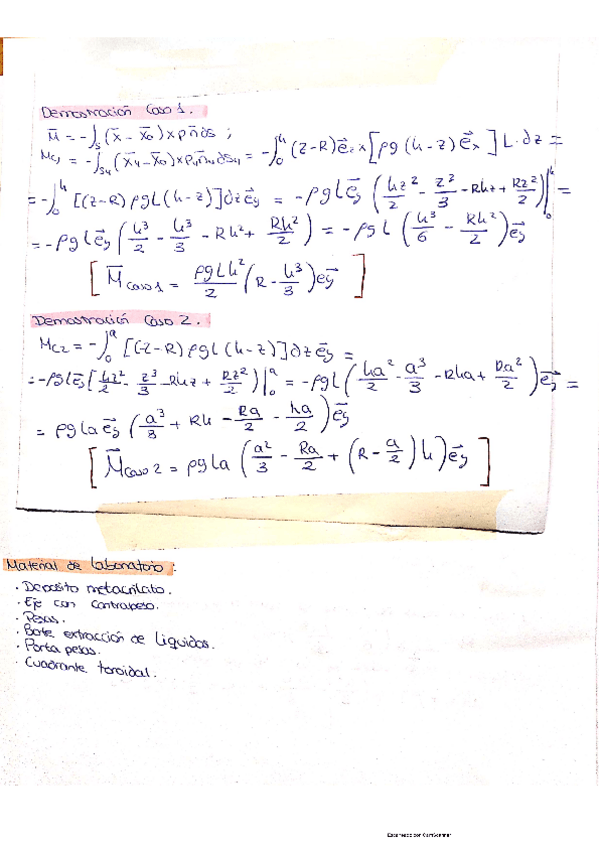 Demostración Caso 1.
M̄ = -∫_S (x̄ - x̄₀) × p n̄ ds ;
M_C1 = -∫_S4 (x̄₄ - x̄₀) × p₄ n̄₄ ds₄ = -∫₀^h (z-R) e⃗_z × [ρg (h-z) e⃗_x] L·dz =
= -∫₀^h [(z-R) ρgL (h-z)] dz e⃗_y = -ρgL e⃗_y (hz²/2 - z³/3 - Rhz + Rz²/2)|₀^h =
= -ρgL e⃗_y (h³/2 - h³/3 - Rh² + Rh²/2) = -ρgL (h³/6 - Rh²/2) e⃗_y
[ M⃗_Caso 1 = ρgLh²/2 (R - h³/3) e⃗_y ]
Demostración Caso 2.
M_C2 = -∫₀^a [(z-R) ρgL (h-z)] dz e⃗_y =
= -ρgL e⃗_y [hz²/2 - z³/3 - Rhz + Rz²/2)|₀^a = -ρgL (ha²/2 - a³/3 - Rha + Ra²/2) e⃗_y =
= ρgLa e⃗_y (a³/3 + Rh - Ra/2 - ha/2) e⃗_y
[ M⃗_Caso 2 = ρgLa (a²/3 - Ra/2 + (R - a/2) h) e⃗_y ]
Material de laboratorio :
· Deposito metacrilato.
· Eje con contrapeso.
· Pesas.
· Bote extracción de líquidos.
· Porta pesas.
· Cuadrante toroidal.
Escaneado con CamScanner